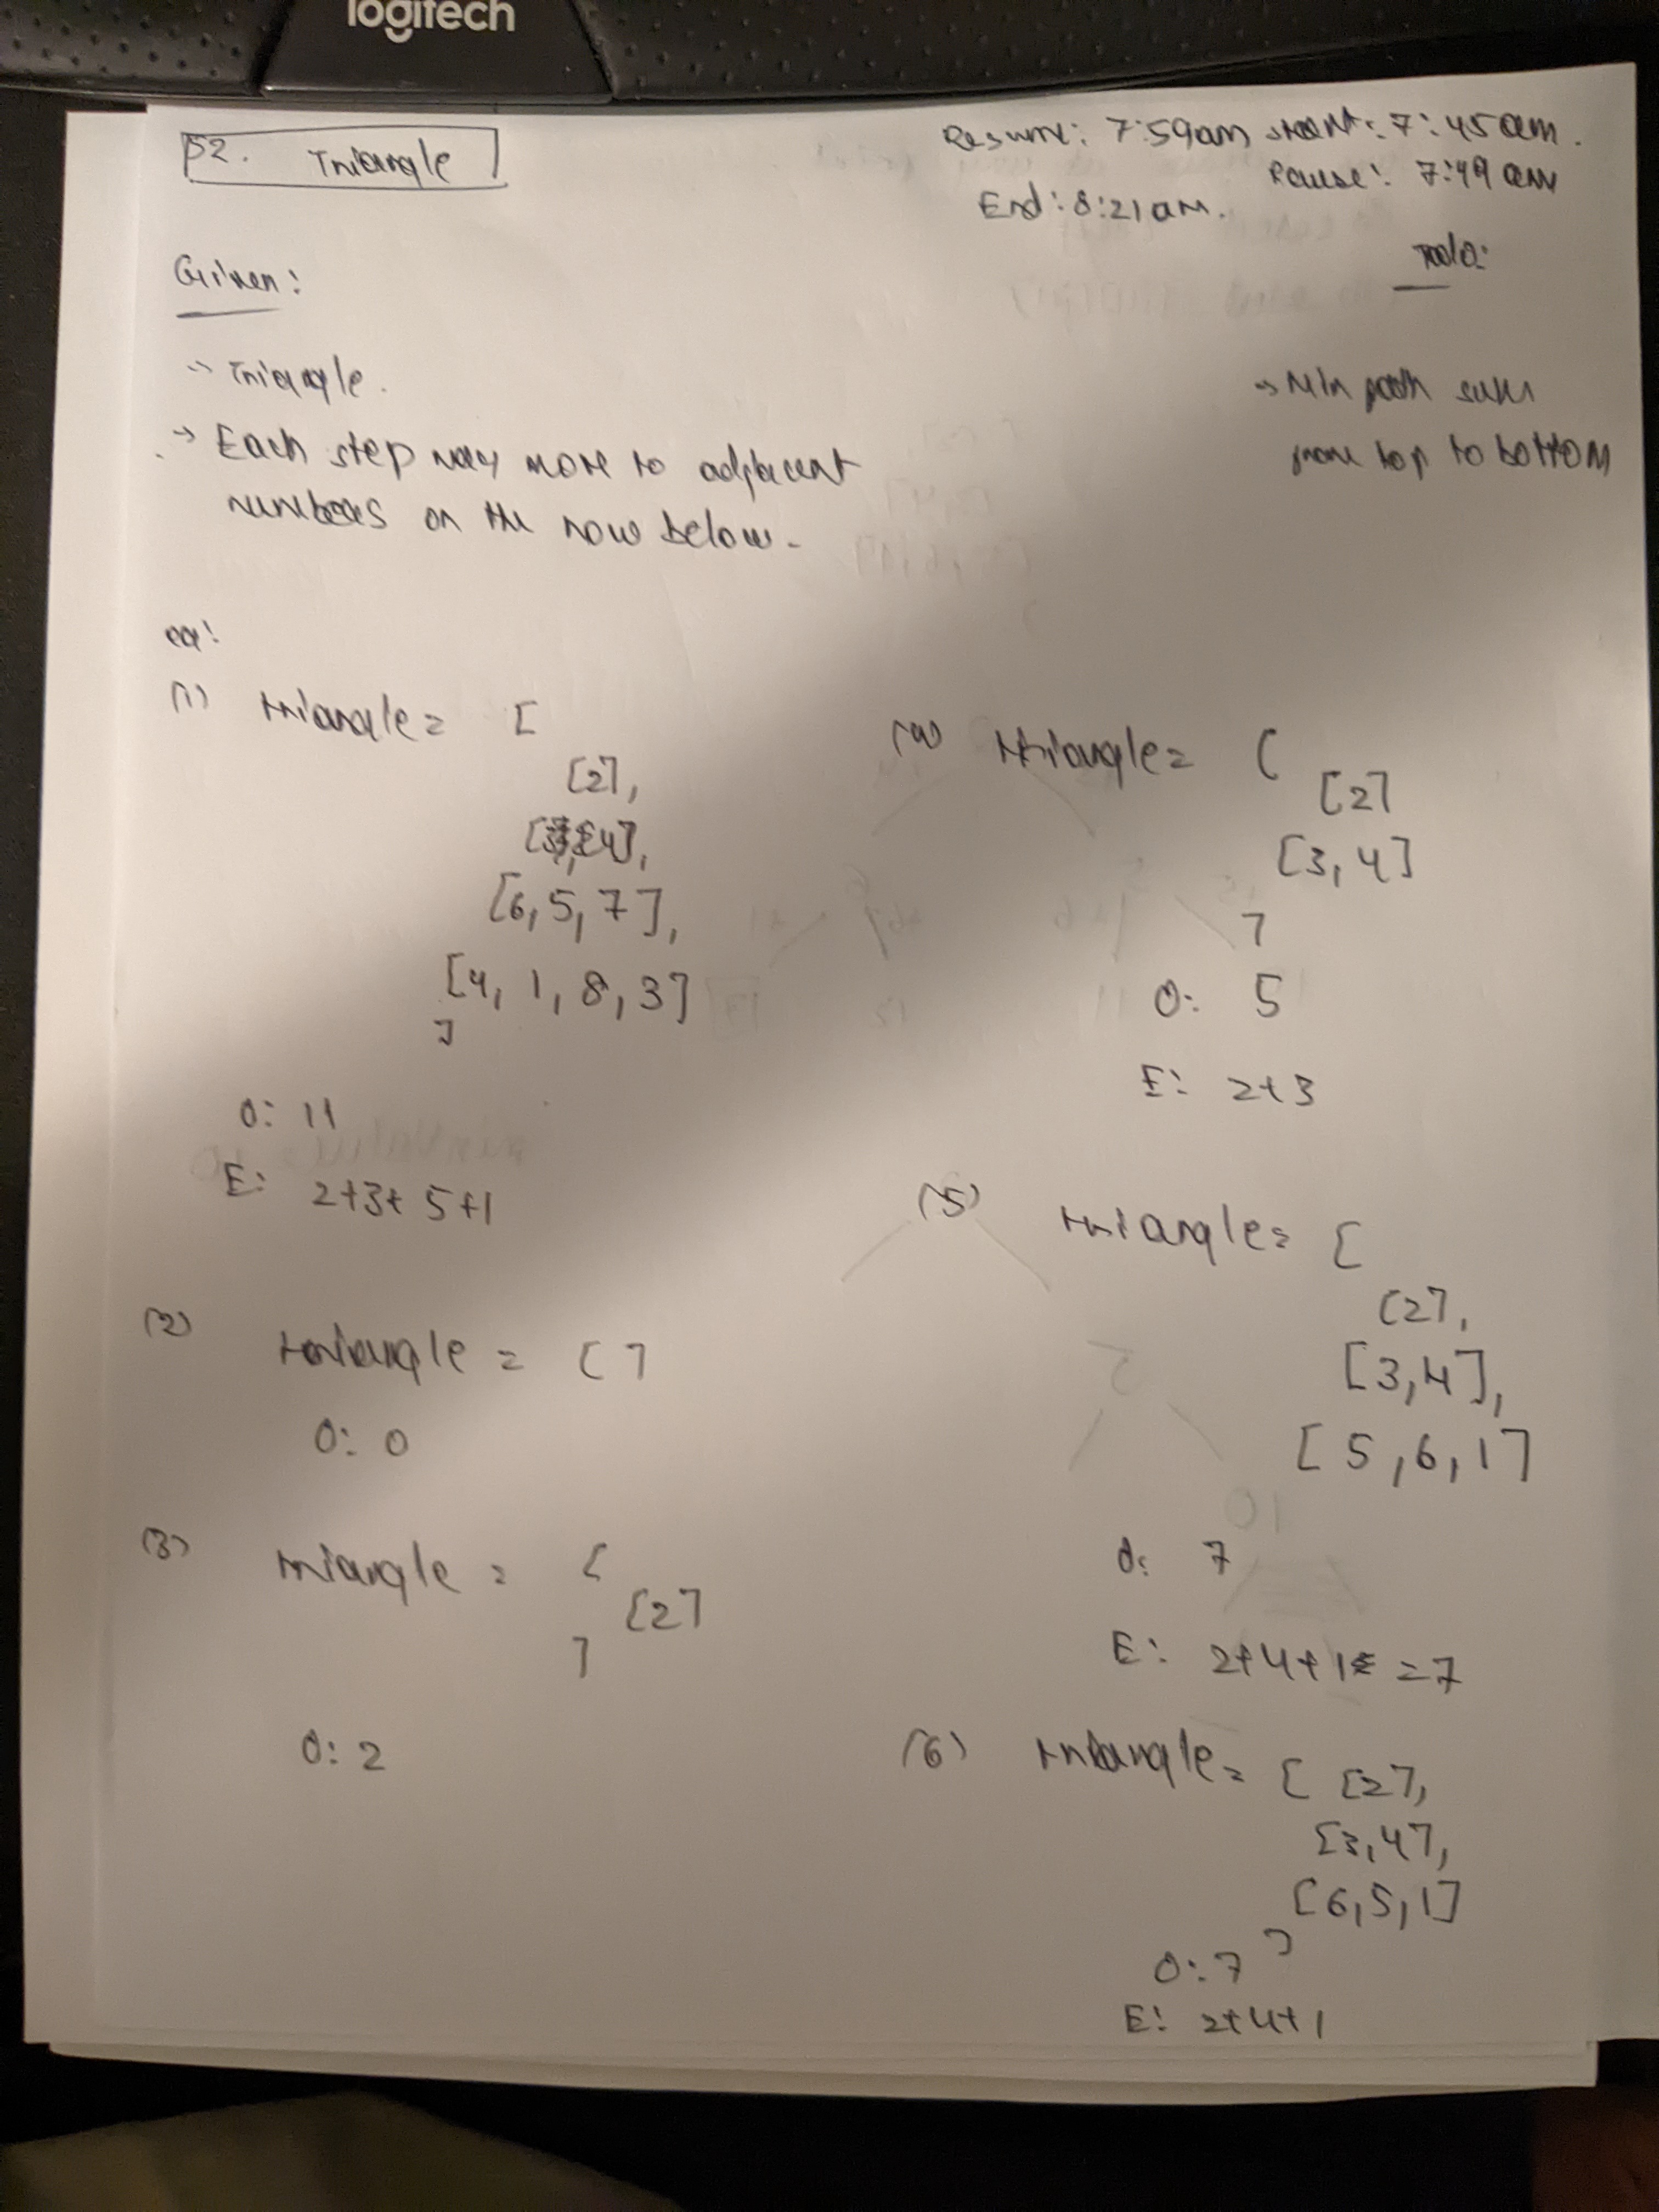 logitech
52. Triangle
Resume: 7:59am start: 7:45am.
Pause: 7:49am
End: 8:21am.
Given:
Todo:
→ Triangle.
→ Each step may move to adjacent
numbers on the row below.
→ Min path sum
from top to bottom
eg:
(1) triangle = [
[2],
[3, 4],
[6, 5, 7],
[4, 1, 8, 3]
]
O: 11
E: 2+3+5+1
(2) triangle = []
O: 0
(3) triangle = [
[2]
]
O: 2
(4) triangle = [
[2]
[3, 4]
]
O: 5
E: 2+3
(5) triangle = [
[2],
[3,4],
[5,6,1]
O: 7
E: 2+4+1 = 7
(6) triangle = [ [2],
[3,4],
[6,5,1]
]
O: 7
E: 2+4+1